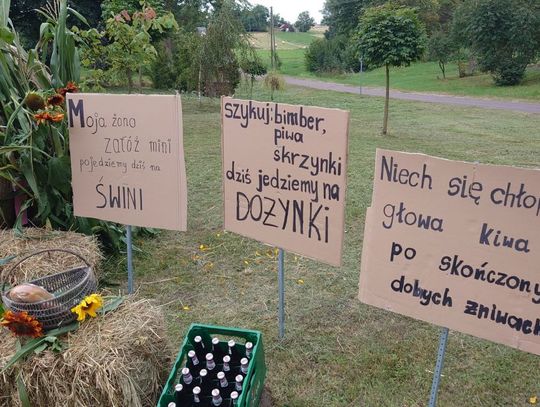 Moja żono
załóż mini
pojedziemy dziś na
ŚWINI
szykuj: bimber,
piwa
skrzynki
dziś jedziemy na
DOŻYNKI
Niech się chłop
głowa kiwa
po skończony
dobych żniwac